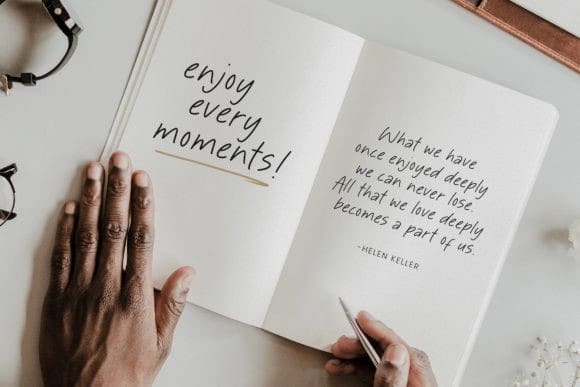 enjoy
every
moments!
What we have
once enjoyed deeply
we can never lose.
All that we love deeply
becomes a part of us.
-HELEN KELLER